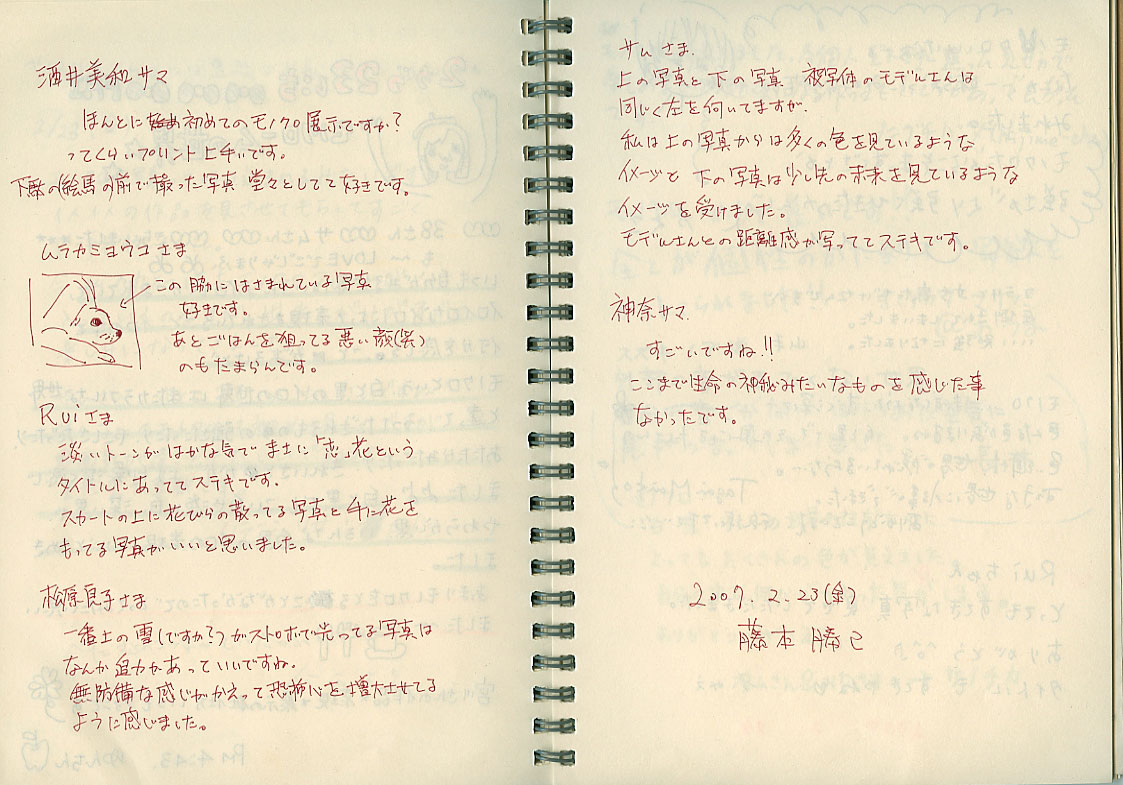 酒井美和サマ
ほんとに初めてのモノクロ展示ですか?
ってくらいプリント上手いです。
下段の(絵馬の)前で撮った写真 堂々としてて好きです。
ムラカミヨウコさま
この脇にはさまれている写真
好きです。
あとごはんを狙ってる悪い顔(笑)
のもたまらんです。
Ruiさま
淡いトーンがはかな気で まさに「恋」花という
タイトルにあっててステキです。
スカートの上に花びらの散ってる写真と手に花を
もってる写真がいいと思いました。
松原良子さま
一番上の雪(ですか?)がストロボで光ってる写真は
なんか迫力があっていいですね。
無防備な感じがかえって恐怖心を増大させてる
ように感じました。
サムさま.
上の写真と下の写真 被写体のモデルさんは
同じく左を向いてますが.
私は上の写真からは多くの色を見ているような
イメージと 下の写真は少し先の未来を見ているような
イメージを受けました。
モデルさんとの距離感が写っててステキです。
神奈サマ.
すごいですね!!
ここまで生命の神秘みたいなものを感じた事
なかったです。
2007. 2. 23(金)
藤本勝己